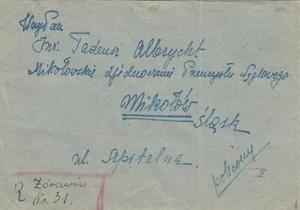 WielPan
Inż. Tadeusz Albrycht
Mikołowskie Zjednoczenie Przemysłu Węglowego
Mikołów
Śląsk
ul. Szpitalna
polecony
R Żórawin
Nr. 31.